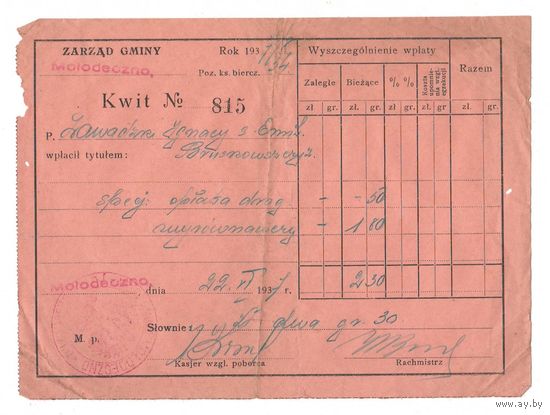 ZARZĄD GMINY
Mołodeczno,
Rok 193
Poz. ks. biercz.
Kwit № 815
Wyszczególnienie wpłaty
Razem
Zaległe
Bieżące
% %
Koszta upomnienia wzgl. egzekucji
zł. gr. zł. gr. zł. gr. zł. gr. zł. gr.
P. Ignacy s.
wpłacił tytułem:
opłata drog. - - 50
wyrównawczy - 1 80
2 30
Mołodeczno, dnia 22 VI 1937 r.
Słownie: zł dwa gr. 30
M. p.
Kasjer wzgl. poborca
Rachmistrz
www.ay.by